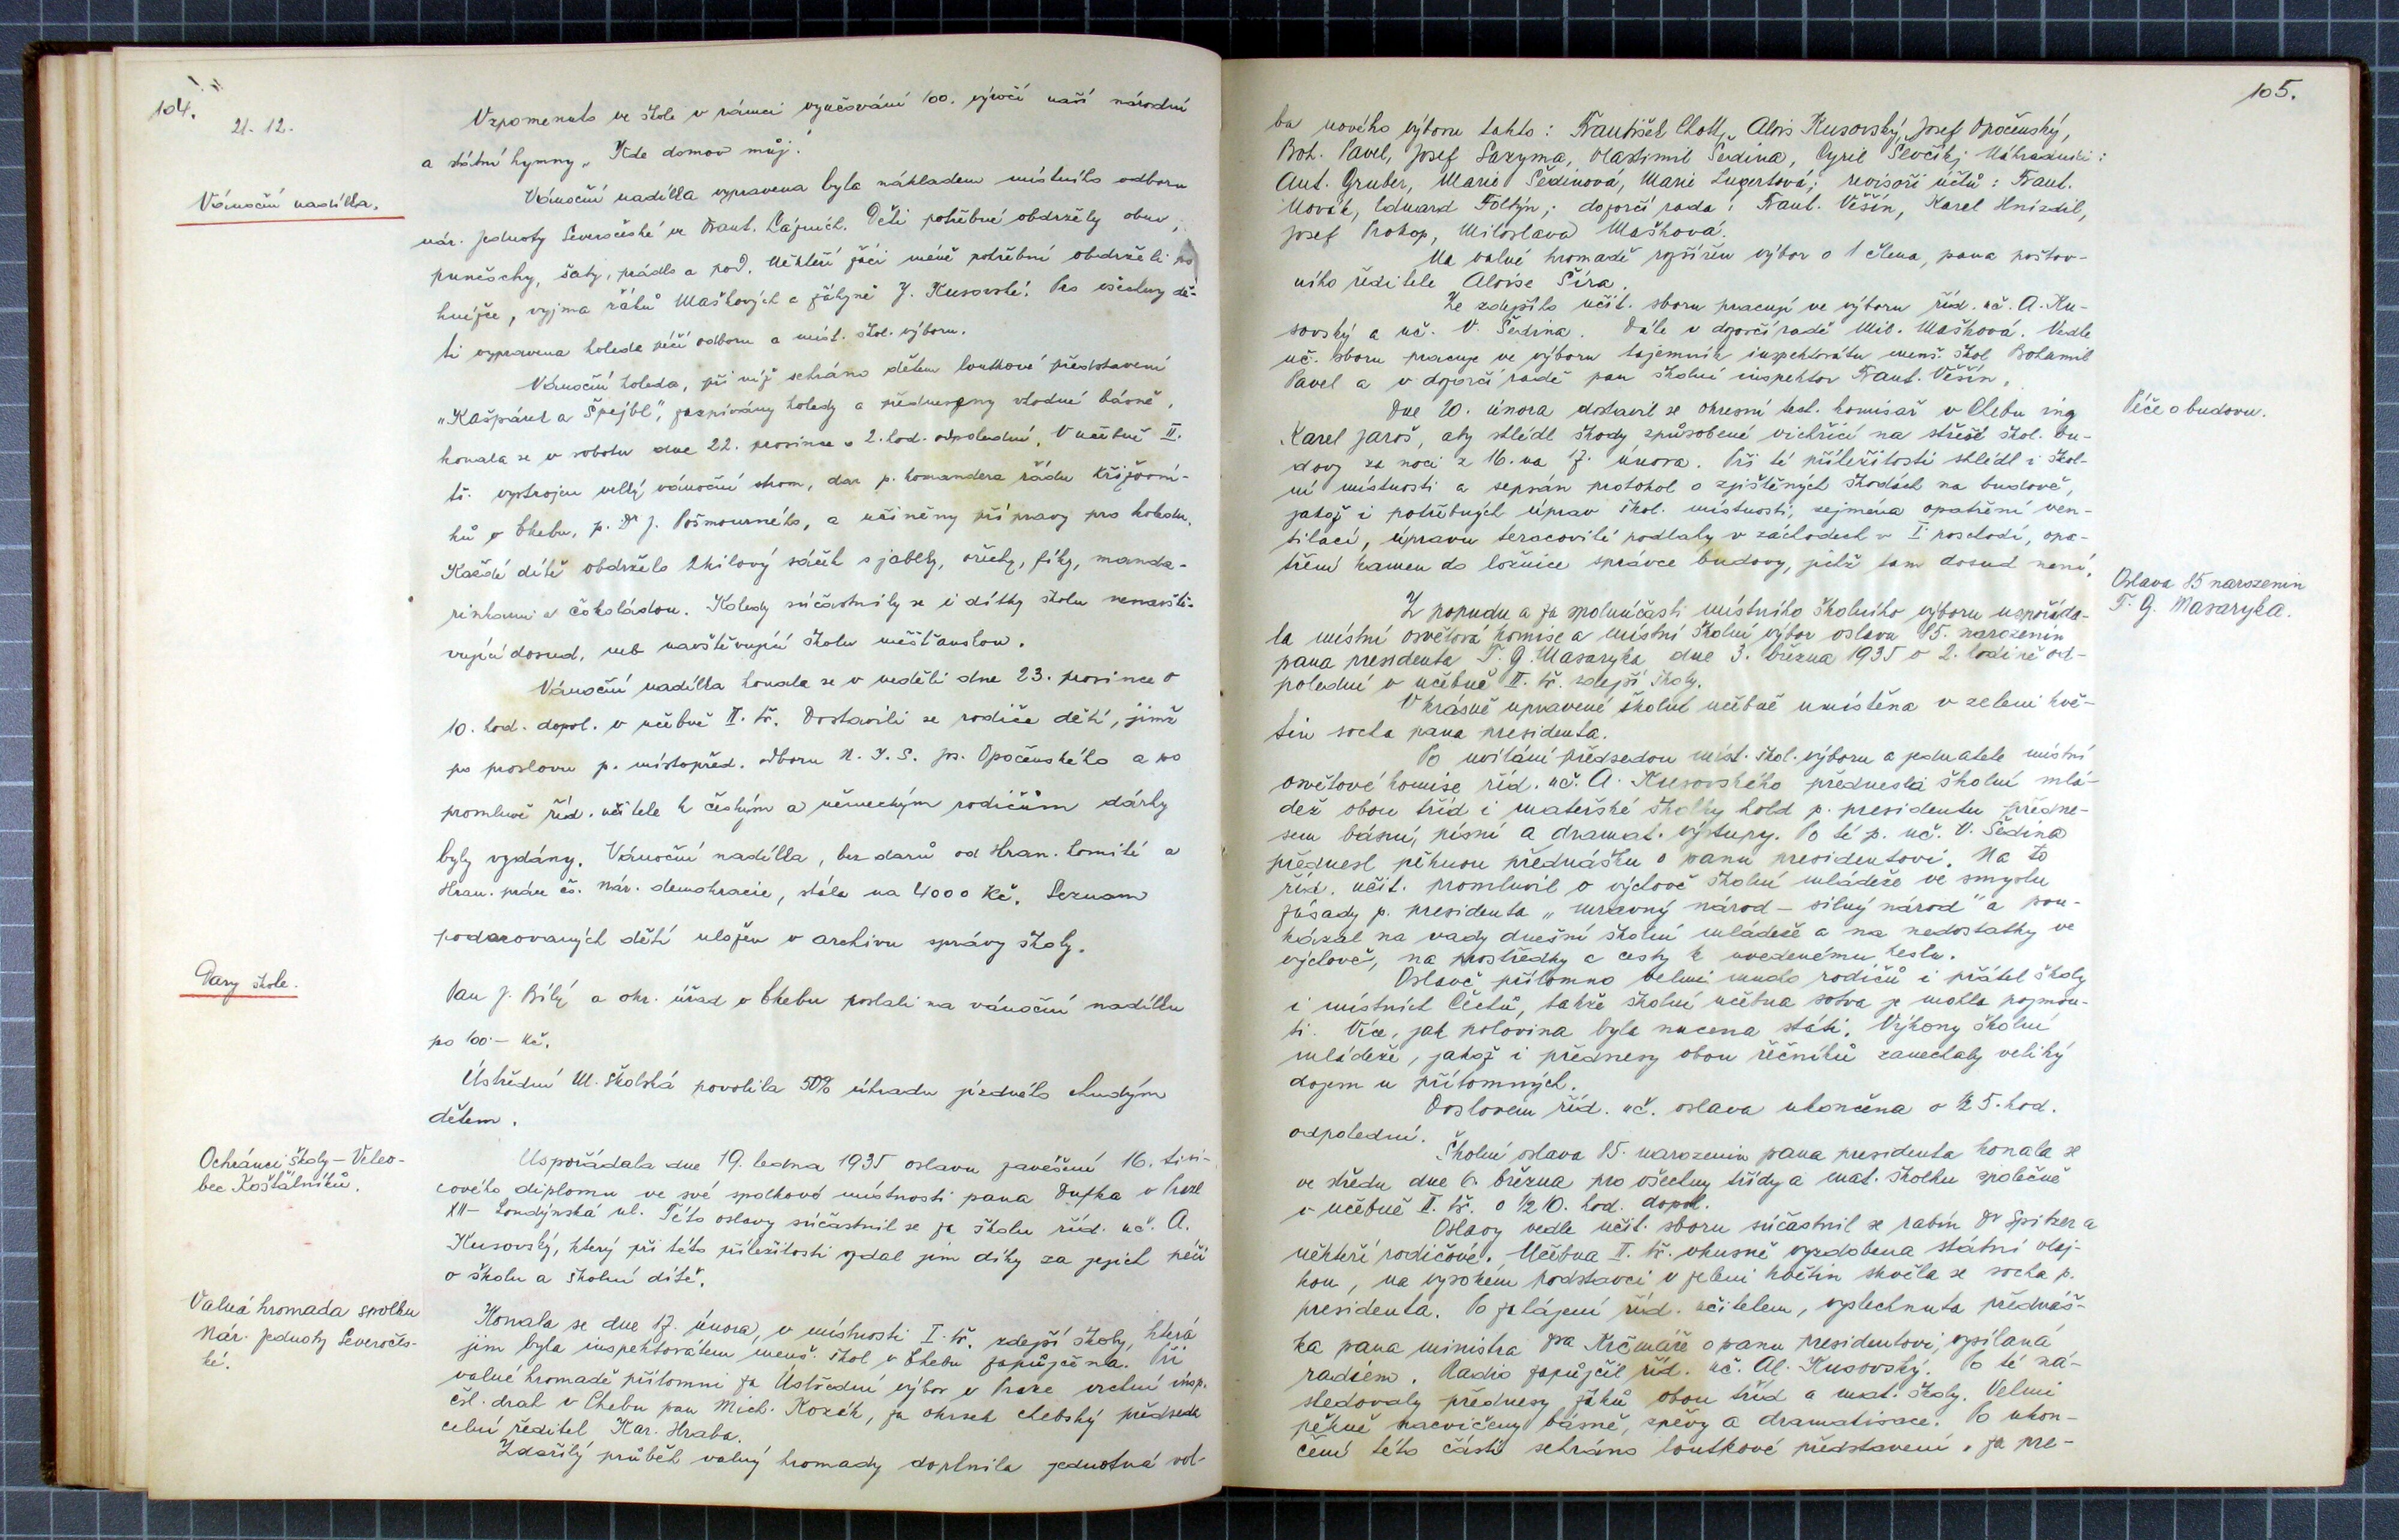 104.
21. 12.
Vzpomenuto ve škole v rámci vyučování 100. výročí naší národní
a státní hymny „Kde domov můj.
Vánoční nadílka.
Vánoční nadílka vypravena byla nákladem místního odboru
nár. jednoty Severočeské ve Frant. Lázních. Děti potřebné obdržely obuv,
punčochy, šaty, prádlo a pod. Někteří žáci méně potřební obdrželi po
knížce, vyjma žáků Maškových a žákyně J. Kusovské. Pro všechny dě-
ti vypravena koleda péčí odboru a míst. škol. výboru.
Vánoční koleda, při níž sehráno dětem loutkové představení
„Kašpárek a Špejbl", zazpívány koledy a předneseny vhodné básně,
konala se v sobotu dne 22. prosince o 2. hod. odpolední. V učebně II.
tř. vystrojen velký vánoční strom, dar p. komandera řádu křižovní-
ků v Chebu, p. Dr J. Pošmourného, a učiněny přípravy pro koledu.
Každé dítě obdrželo 2kilový sáček s jablky, ořechy, fíky, manda-
rinkami a čokoládou. Koledy súčastnily se i dítky školu nenavště-
vující dosud, neb navštěvující školu měšťanskou.
Vánoční nadílka konala se v neděli dne 23. prosince o
10. hod. dopol. v učebně II. tř. Dostavili se rodiče dětí, jimž
po proslovu p. místopřed. odboru N. J. S. Jos. Opočenského a po
promluvě říd. učitele k českým a německým rodičům dárky
byly vydány. Vánoční nadílka, bez darů od Hran. komité a
Hran. práce čs. nár. demokracie, stála na 4000 Kč. Seznam
podarovaných dětí uložen v archivu správy školy.
Dary škole.
Pan J. Bílý a okr. úřad v Chebu poslali na vánoční nadílku
po 100.- Kč.
Ústřední M. školská povolila 50% úhradu jízdného chudým
dětem.
Ochránci školy - Veleo-
bec Košťálníků.
Uspořádala dne 19. ledna 1935 oslavu zavěšení 16. tisí-
cového diplomu ve své spolkové místnosti pana Dufka v Praze
XII- Londýnská ul. Této oslavy súčastnil se za školu říd. uč. A.
Kusovský, který při této příležitosti vzdal jim díky za jejich péči
o školu a školní dítě.
Valná hromada spolku
Nár. jednoty Severočes-
ké.
Konala se dne 17. února, v místnosti I. tř. zdejší školy, která
jim byla inspektorátem menš. škol v Chebu zapůjčena. Při
valné hromadě přítomni za Ústřední výbor v Praze vrchní insp.
čsl. drah v Chebu pan Mich. Kozák, za okrsek chebský předseda
celní ředitel Kar. Hraba.
Zdařilý průběh valný hromady doplnila jednotná vol-
105.
ba nového výboru takto: František Chott, Alois Kusovský, Josef Opočenský,
Boh. Pavel, Josef Lazyma, Vlastimil Šedina, Cyril Ševčík; Náhradníci:
Ant. Gruber, Marie Šedinová, Marie Lugertová; revisoři účtů: Frant.
Novák, Eduard Foltýn; dozorčí rada: Frant. Věšín, Karel Hnízdil,
Josef Prokop, Miloslava Mašková.
Na valné hromadě rozšířen výbor o 1 člena, pana poštov-
ního ředitele Aloise Šíra.
Ze zdejšího učit. sboru pracují ve výboru říd. uč. A. Ku-
sovský a uč. V. Šedina. Dále v dozorčí radě Mil. Mašková. Vedle
uč. sboru pracuje ve výboru tajemník inspektorátu menš. škol Bohumil
Pavel a v dozorčí radě pan školní inspektor Frant. Věšín.
Péče o budovu.
Dne 20. února dostavil se okresní tech. komisař v Chebu ing
Karel Jaroš, aby shlédl škody způsobené vichřicí na střeše škol. bu-
dovy za noci z 16. na 17. února. Při té příležitosti shlédl i škol-
ní místnosti a sepsán protokol o zjištěných škodách na budově,
jakož i potřebných úprav škol. místností, zejména opatření ven-
tilací, úpravu teracovité podlahy v záchodech v I. poschodí, opa-
tření kamen do ložnice správce budovy, jichž tam dosud není.
Oslava 85 narozenin
T. G. Masaryka.
Z popudu a za spoluúčasti místního školního výboru uspořáda-
la místní osvětová komise a místní školní výbor oslavu 85. narozenin
pana presidenta T. G. Masaryka dne 3. března 1935 o 2. hodině od-
polední v učebně II. tř. zdejší školy.
V krásně upravené školní učebně umístěna v zeleni kvě-
tin socha pana presidenta.
Po uvítání předsedou míst. škol. výboru a jednatele místní
osvětové komise říd. uč. A. Kusovského přednesla školní mlá-
dež obou tříd i mateřské školky hold p. presidentu předne-
sem básní, písní a dramat. výstupy. Po té p. uč. V. Šedina
přednesl pěknou přednášku o panu presidentovi. Na to
říd. učit. promluvil o výchově školní mládeže ve smyslu
zásady p. presidenta „mravný národ - silný národ" a pou-
kázal na vady dnešní školní mládeže a na nedostatky ve
výchově, na prostředky a cesty k uvedenému heslu.
Oslavě přítomno velmi mnoho rodičů i přátel školy
i místních Čechů, takže školní učebna sotva je mohla pojmou-
ti. Více, jak polovina byla nucena státi. Výkony školní
mládeže, jakož i přednesy obou řečníků zanechaly veliký
dojem u přítomných.
Doslovem říd. uč. oslava ukončena o ½ 5. hod.
odpolední.
Školní oslava 85. narozenin pana presidenta konala se
ve středu dne 6. března pro všechny třídy a mat. školku společně
v učebně II. tř. o ½ 10. hod. dopol.
Oslavy vedle učit. sboru súčastnil se rabín Dr Spitzer a
někteří rodičové. Učebna II. tř. vkusně vyzdobena státní vlaj-
kou, na vysokém podstavci v zeleni květin skvěla se socha p.
presidenta. Po zahájení říd. učitelem, vyslechnuta přednáš-
ka pana ministra Dra Krčmáře o panu presidentovi, vysílaná
radiem. Radio zapůjčil říd. uč. Al. Kusovský. Po té ná-
sledovaly přednesy žáků obou tříd a mat. školy. Velmi
pěkně nacvičeny básně, zpěvy a dramatisace. Po ukon-
čení této části sehráno loutkové představení. Za pre-